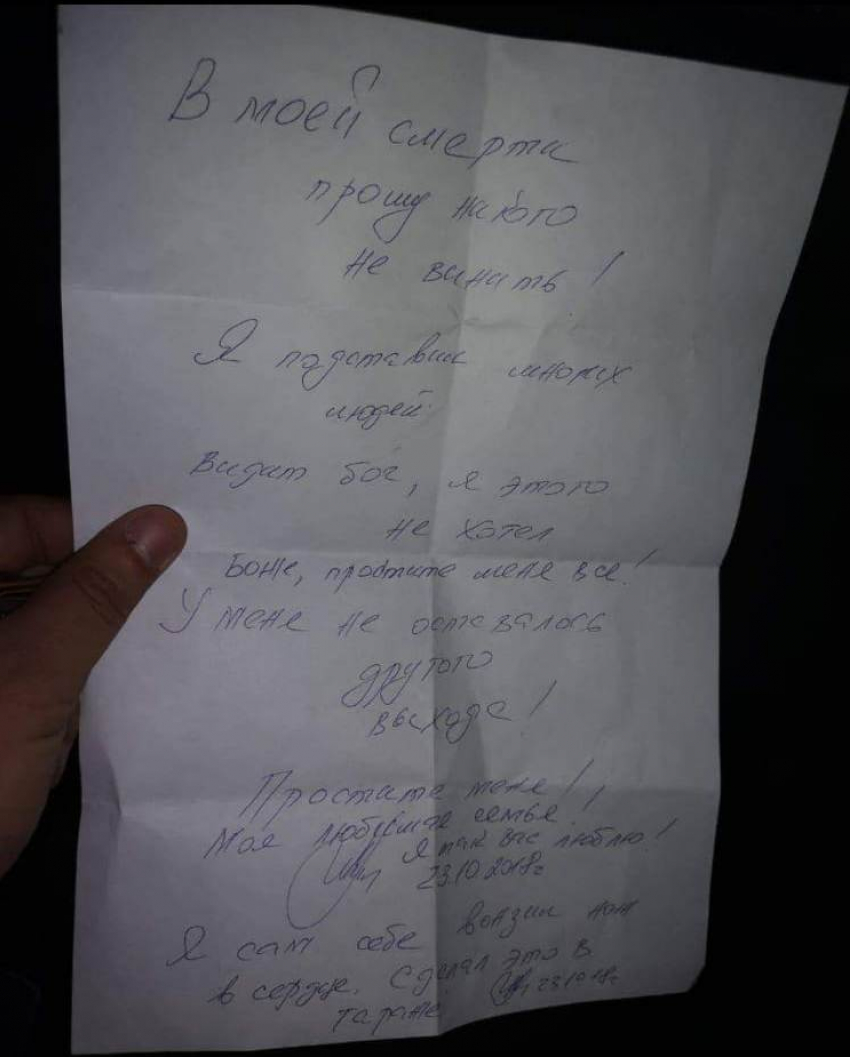 В моей смерти
прошу никого
не винить!
Я подставил многих
людей
Видит бог, я этого
не хотел
Боже, простите меня все!
У меня не оставалось
другого
выхода!
Простите меня!
Моя любимая семья!
Я так вас люблю!
23.10.2018г
Я сам себе вонзил нож
в сердце. Сделал это в
гараже.
23.10.18г